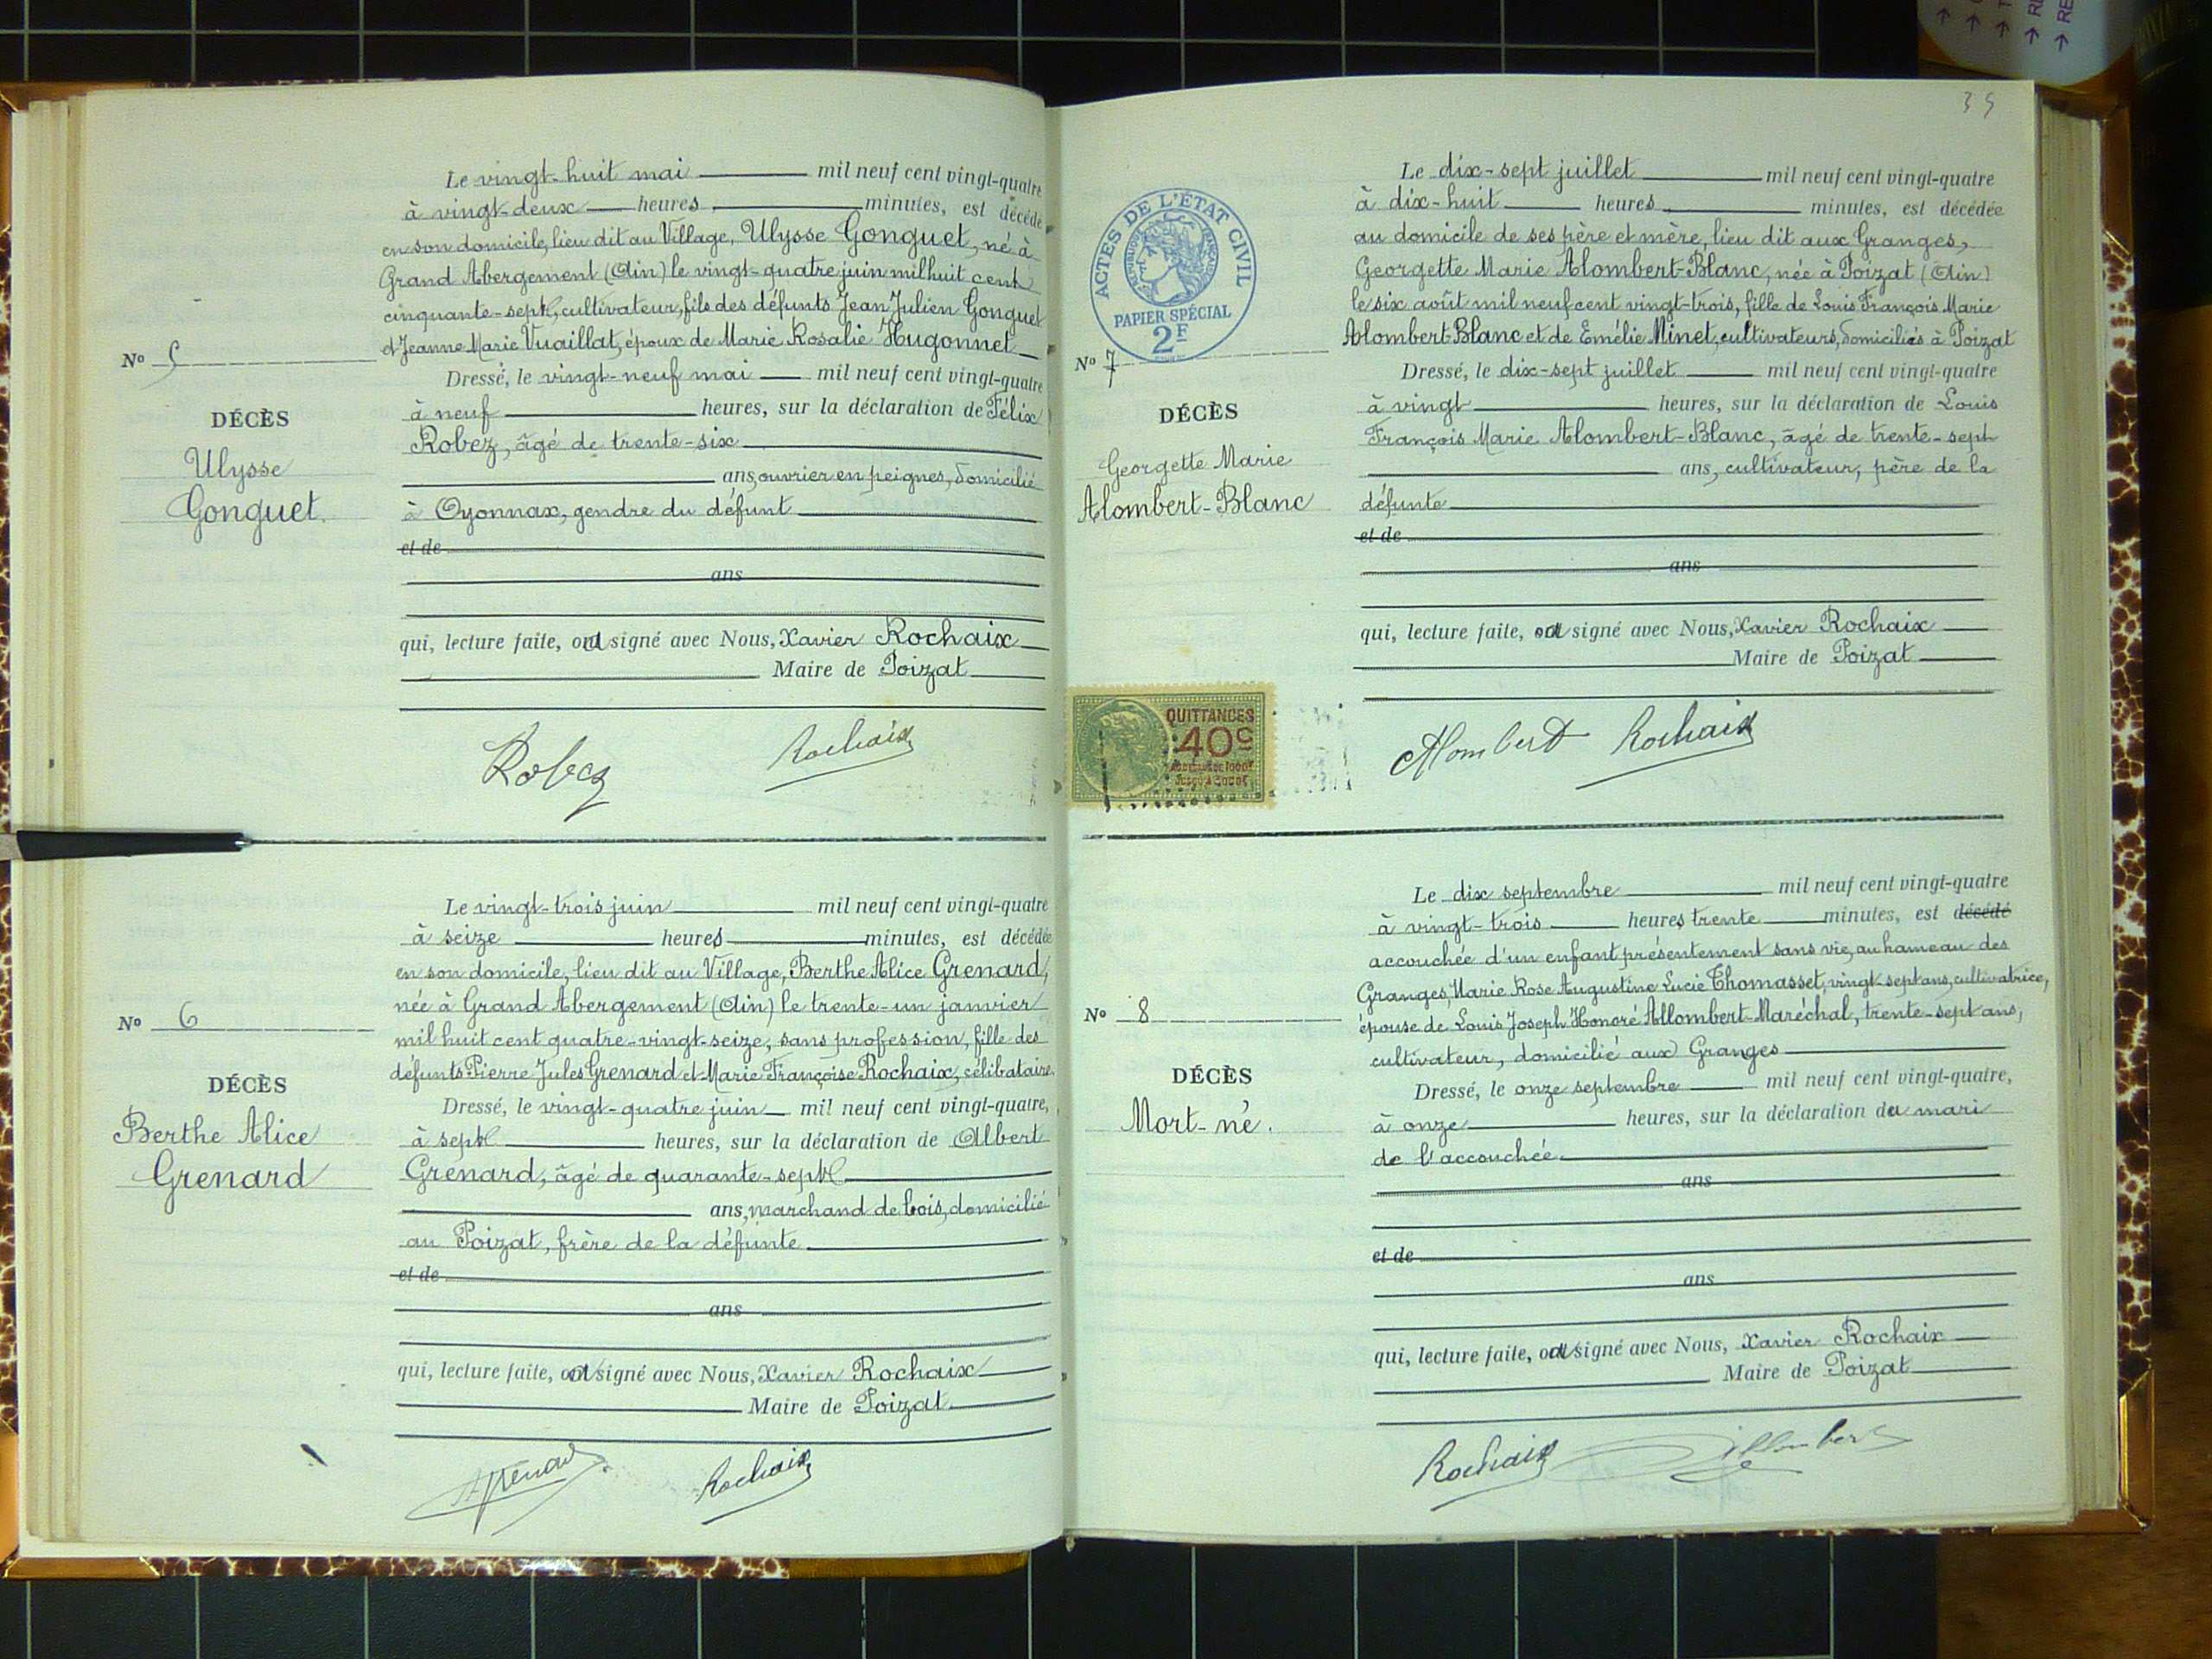 Le vingt-huit mai mil neuf cent vingt-quatre
à vingt-deux heures, minutes, est décédé
en son domicile, lieu dit au Village, Ulysse Gonguet, né à
Grand Abergement (Ain) le vingt-quatre juin mil huit cent
cinquante-sept, cultivateur, fils des défunts Jean Julien Gonguet
et Jeanne Marie Vuaillat, époux de Marie Rosalie Hugonnet
Nº 5
Dressé, le vingt-neuf mai mil neuf cent vingt-quatre
à neuf heures, sur la déclaration de Félix
DÉCÈS
Robez, âgé de trente-six
Ulysse
ans, ouvrier en peignes, domicilié
Gonguet.
à Oyonnax, gendre du défunt
et de
ans
qui, lecture faite, ont signé avec Nous, Xavier Rochaix
Maire de Poizat
Robez Rochaix
Le vingt-trois juin mil neuf cent vingt-quatre
à seize heures minutes, est décédée
en son domicile, lieu dit au Village, Berthe Alice Grenard,
née à Grand Abergement (Ain) le trente-un janvier
Nº 6
mil huit cent quatre-vingt-seize, sans profession, fille des
défunts Pierre Jules Grenard et Marie Françoise Rochaix, célibataire.
DÉCÈS
Dressé, le vingt-quatre juin mil neuf cent vingt-quatre,
Berthe Alice
à sept heures, sur la déclaration de Albert
Grenard
Grenard, âgé de quarante-sept
ans, marchand de bois, domicilié
au Poizat, frère de la défunte
et de
ans
qui, lecture faite, a signé avec Nous, Xavier Rochaix
Maire de Poizat
AGrenard Rochaix
35
ACTES DE L'ÉTAT CIVIL
RÉPUBLIQUE FRANÇAISE
PAPIER SPÉCIAL
2F
Le dix-sept juillet mil neuf cent vingt-quatre
à dix-huit heures, minutes, est décédée
au domicile de ses père et mère, lieu dit aux Granges,
Georgette Marie Alombert-Blanc, née à Poizat (Ain)
le six août mil neuf cent vingt-trois, fille de Louis François Marie
Alombert-Blanc et de Emélie Minet, cultivateurs, domiciliés à Poizat
Nº 7
Dressé, le dix-sept juillet mil neuf cent vingt-quatre
DÉCÈS
à vingt heures, sur la déclaration de Louis
François Marie Alombert-Blanc, âgé de trente-sept
Georgette Marie
ans, cultivateur, père de la
Alombert-Blanc
défunte
et de
ans
qui, lecture faite, a signé avec Nous, Xavier Rochaix
Maire de Poizat
QUITTANCES
40c
Alombert Rochaix
Le dix septembre mil neuf cent vingt-quatre
à vingt-trois heures trente minutes, est décédé
accouchée d'un enfant présentement sans vie, au hameau des
Granges, Marie Rose Augustine Lucie Thomasset, vingt-sept ans, cultivatrice,
Nº 8
épouse de Louis Joseph Honoré Allombert-Maréchal, trente-sept ans,
cultivateur, domicilié aux Granges
DÉCÈS
Dressé, le onze septembre mil neuf cent vingt-quatre,
Mort-né.
à onze heures, sur la déclaration du mari
de l'accouchée.
ans
et de
ans
qui, lecture faite, a signé avec Nous, Xavier Rochaix
Maire de Poizat
Rochaix Allombert